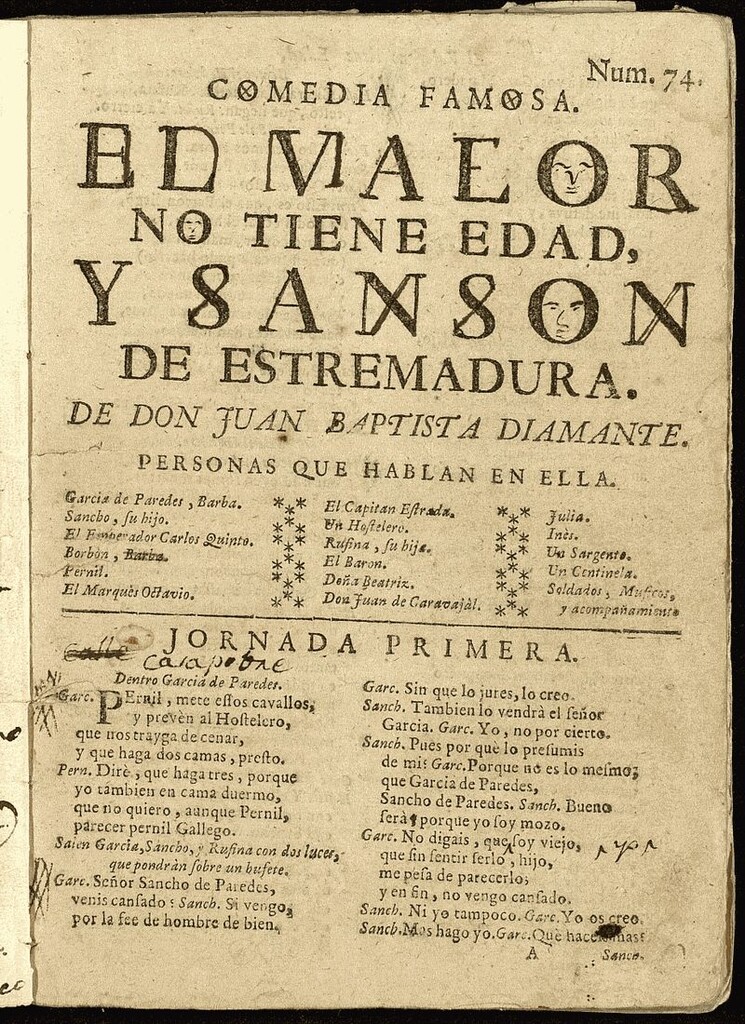 Num. 74.
COMEDIA FAMOSA.
EL VALOR
NO TIENE EDAD,
Y SANSON
DE ESTREMADURA.
DE DON JUAN BAPTISTA DIAMANTE.
PERSONAS QUE HABLAN EN ELLA.
Garcia de Paredes, Barba.
Sancho, su hijo.
El Emperador Carlos Quinto.
Borbòn, Barba.
Pernil.
El Marquès Octavio.
El Capitan Estrada.
Un Hostelero.
Rufina, su hija.
El Baron.
Doña Beatriz.
Don Juan de Caravajàl.
Julia.
Inès.
Un Sargento.
Un Centinela.
Soldados, Musicos,
y acompañamiento
JORNADA PRIMERA.
Calle
casa pobre
Dentro Garcia de Paredes.
Garc. PErnil, mete essos cavallos,
y prevèn al Hostelero,
que nos trayga de cenar,
y que haga dos camas, presto.
Pern. Dirè, que haga tres, porque
yo tambien en cama duermo,
que no quiero, aunque Pernil,
parecer pernil Gallego.
Salen Garcia, Sancho, y Rufina con dos luces,
que pondràn sobre un bufete.
Garc. Señor Sancho de Paredes,
venis cansado? Sanch. Si vengo,
por la fee de hombre de bien.
Garc. Sin que lo jures, lo creo.
Sanch. Tambien lo vendrà el señor
Garcia. Garc. Yo, no por cierto.
Sanch. Pues por què lo presumis
de mi? Garc. Porque no es lo mesmo;
que Garcia de Paredes,
Sancho de Paredes. Sanch. Bueno
serà, porque yo soy mozo.
Garc. No digais, que soy viejo,
que sin sentir serlo, hijo,
me pesa de parecerlo;
y en fin, no vengo cansado.
Sanch. Ni yo tampoco. Garc. Yo os creo.
Sanch. Mas hago yo. Garc. Què haceis mas?
A
Sanch.